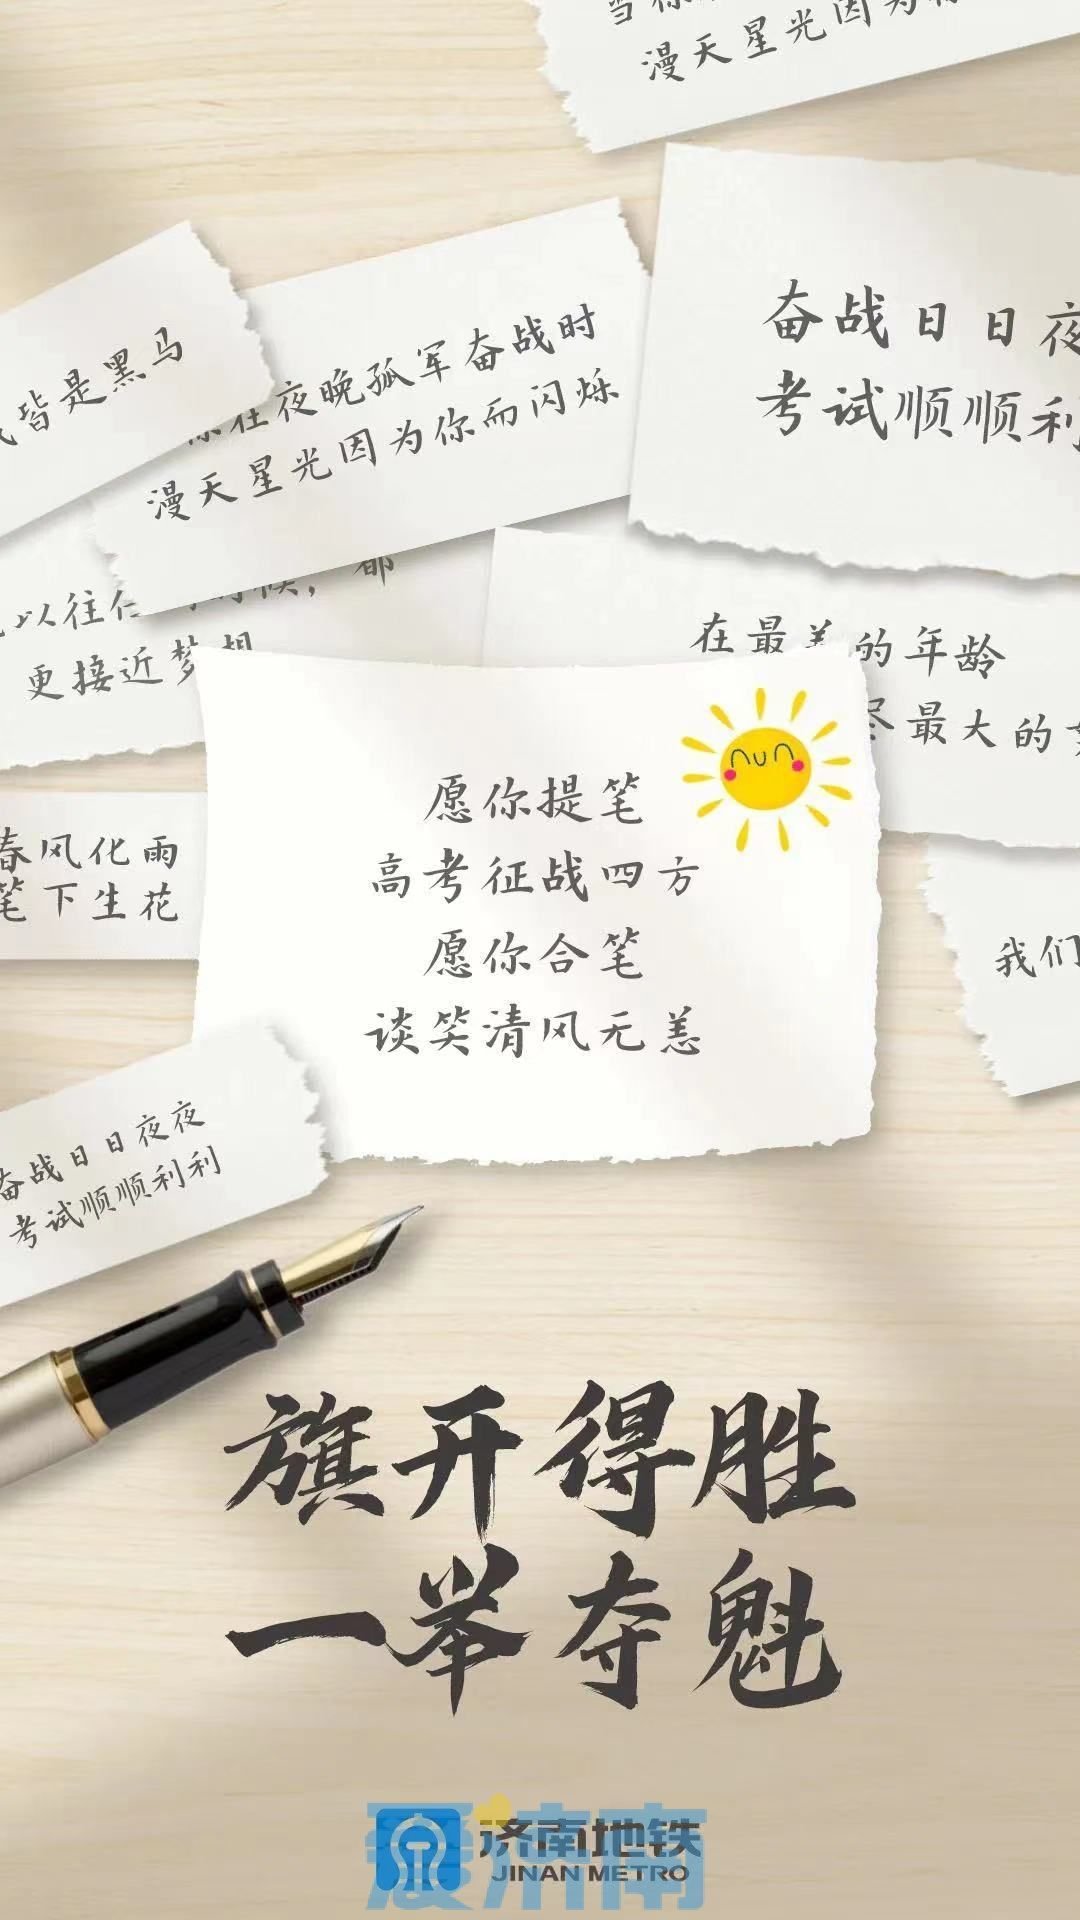 漫天星光因为
奋战日日夜
考试顺顺利
皆是黑马
你在夜晚孤军奋战时
漫天星光因为你而闪烁
以往任 时候，都
更接近梦想
在最美的年龄
尽最大的
愿你提笔
高考征战四方
愿你合笔
谈笑清风无恙
春风化雨
笔下生花
我们
奋战日日夜夜
考试顺顺利利
旗开得胜
一举夺魁
爱济南
济南地铁
JINAN METRO